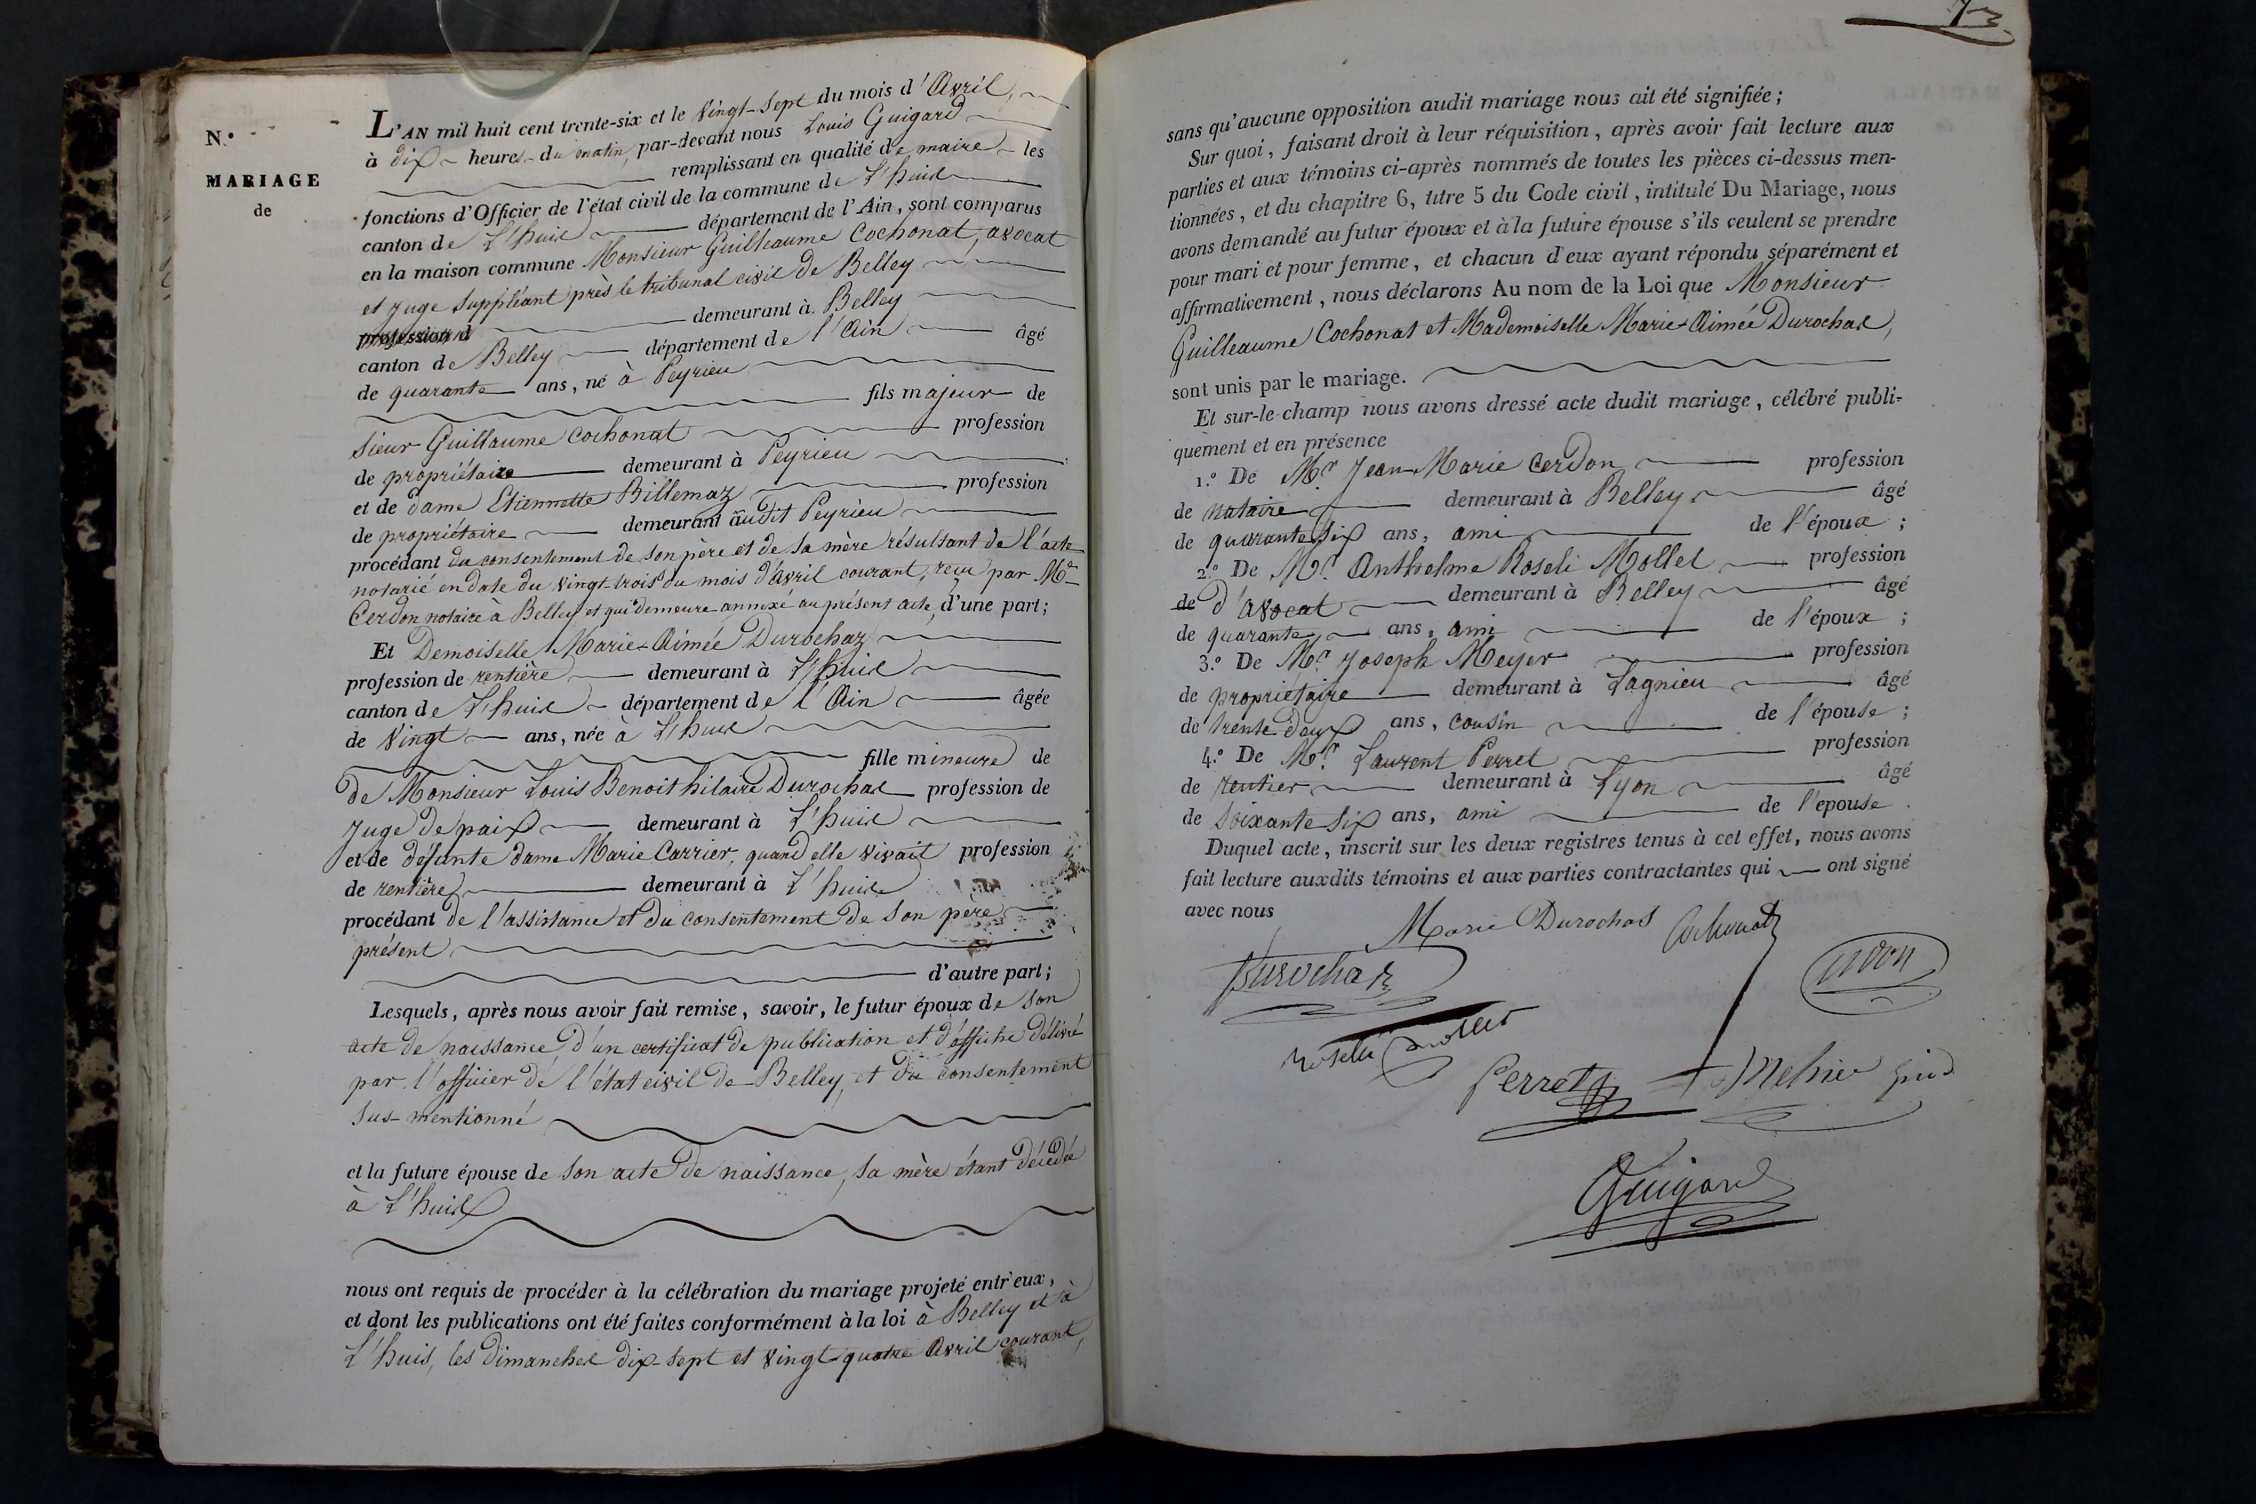 N.o
MARIAGE
de
L'AN mil huit cent trente-six et le vingt-sept du mois d'Avril,
à dix heures du matin, par-devant nous Louis Guigard
remplissant en qualité de maire les
fonctions d'Officier de l'état civil de la commune de L'huis
canton de L'huis département de l'Ain, sont comparus
en la maison commune Monsieur Guilleaume Cochonat, avocat
et Juge Suppléant près le tribunal civil de Belley
profession d demeurant à Belley
canton de Belley département de l'Ain âgé
de quarante ans, né à Peyrieu
fils majeur de
Sieur Guillaume Cochonat profession
de propriétaire demeurant à Peyrieu
et de dame Etiennette Billemaz profession
de propriétaire demeurant audit Peyrieu
procédant du consentement de son père et de sa mère résultant de l'acte
notarié en date du vingt-trois du mois d'avril courant, reçu par Me
Cerdon notaire à Belley et qui demeure annexé au présent acte, d'une part;
Et Demoiselle Marie-Aimée Durochaz
profession de rentière demeurant à L'huis
canton de L'huis département de l'Ain âgée
de vingt ans, née à L'huis
fille mineure de
de Monsieur Louis Benoit hilaire Durochas profession de
Juge de paix demeurant à L'huis
et de défunte dame Marie Carrier, quand elle vivait profession
de rentière demeurant à L'huis
procédant de l'assistance et du consentement de son père
présent
d'autre part;
Lesquels, après nous avoir fait remise, savoir, le futur époux de son
acte de naissance, d'un certificat de publication et d'affiche délivré
par l'officier de l'état civil de Belley, et du consentement
sus-mentionné
et la future épouse de son acte de naissance, sa mère étant décédée
à L'huis
nous ont requis de procéder à la célébration du mariage projeté entr'eux,
et dont les publications ont été faites conformément à la loi à Belley et à
L'huis, les dimanches dix-sept et vingt-quatre Avril courant,
73
sans qu'aucune opposition audit mariage nous ait été signifiée;
Sur quoi, faisant droit à leur réquisition, après avoir fait lecture aux
parties et aux témoins ci-après nommés de toutes les pièces ci-dessus men-
tionnées, et du chapitre 6, titre 5 du Code civil, intitulé Du Mariage, nous
avons demandé au futur époux et à la future épouse s'ils veulent se prendre
pour mari et pour femme, et chacun d'eux ayant répondu séparément et
affirmativement, nous déclarons Au nom de la Loi que Monsieur
Guilleaume Cochonat et Mademoiselle Marie-Aimée Durochas,
sont unis par le mariage.
Et sur-le-champ nous avons dressé acte dudit mariage, célébré publi-
quement et en présence
1.o De Mr. Jean-Marie Cerdon profession
de notaire demeurant à Belley âgé
de quarante six ans, ami de l'époux;
2.o De Mr. Anthelme Roseli Mollet profession
de d'avocat demeurant à Belley âgé
de quarante ans, ami de l'époux;
3.o De Mr. Joseph Meyer profession
de propriétaire demeurant à Lagnieu âgé
de trente-deux ans, cousin de l'épouse;
4.o De Mr. Laurent Perret profession
de rentier demeurant à Lyon âgé
de soixante six ans, ami de l'epouse.
Duquel acte, inscrit sur les deux registres tenus à cet effet, nous avons
fait lecture auxdits témoins et aux parties contractantes qui ont signé
avec nous
Marie Durochas Cochonat
Durochas
Roseli Mollet
Perret
Guigard